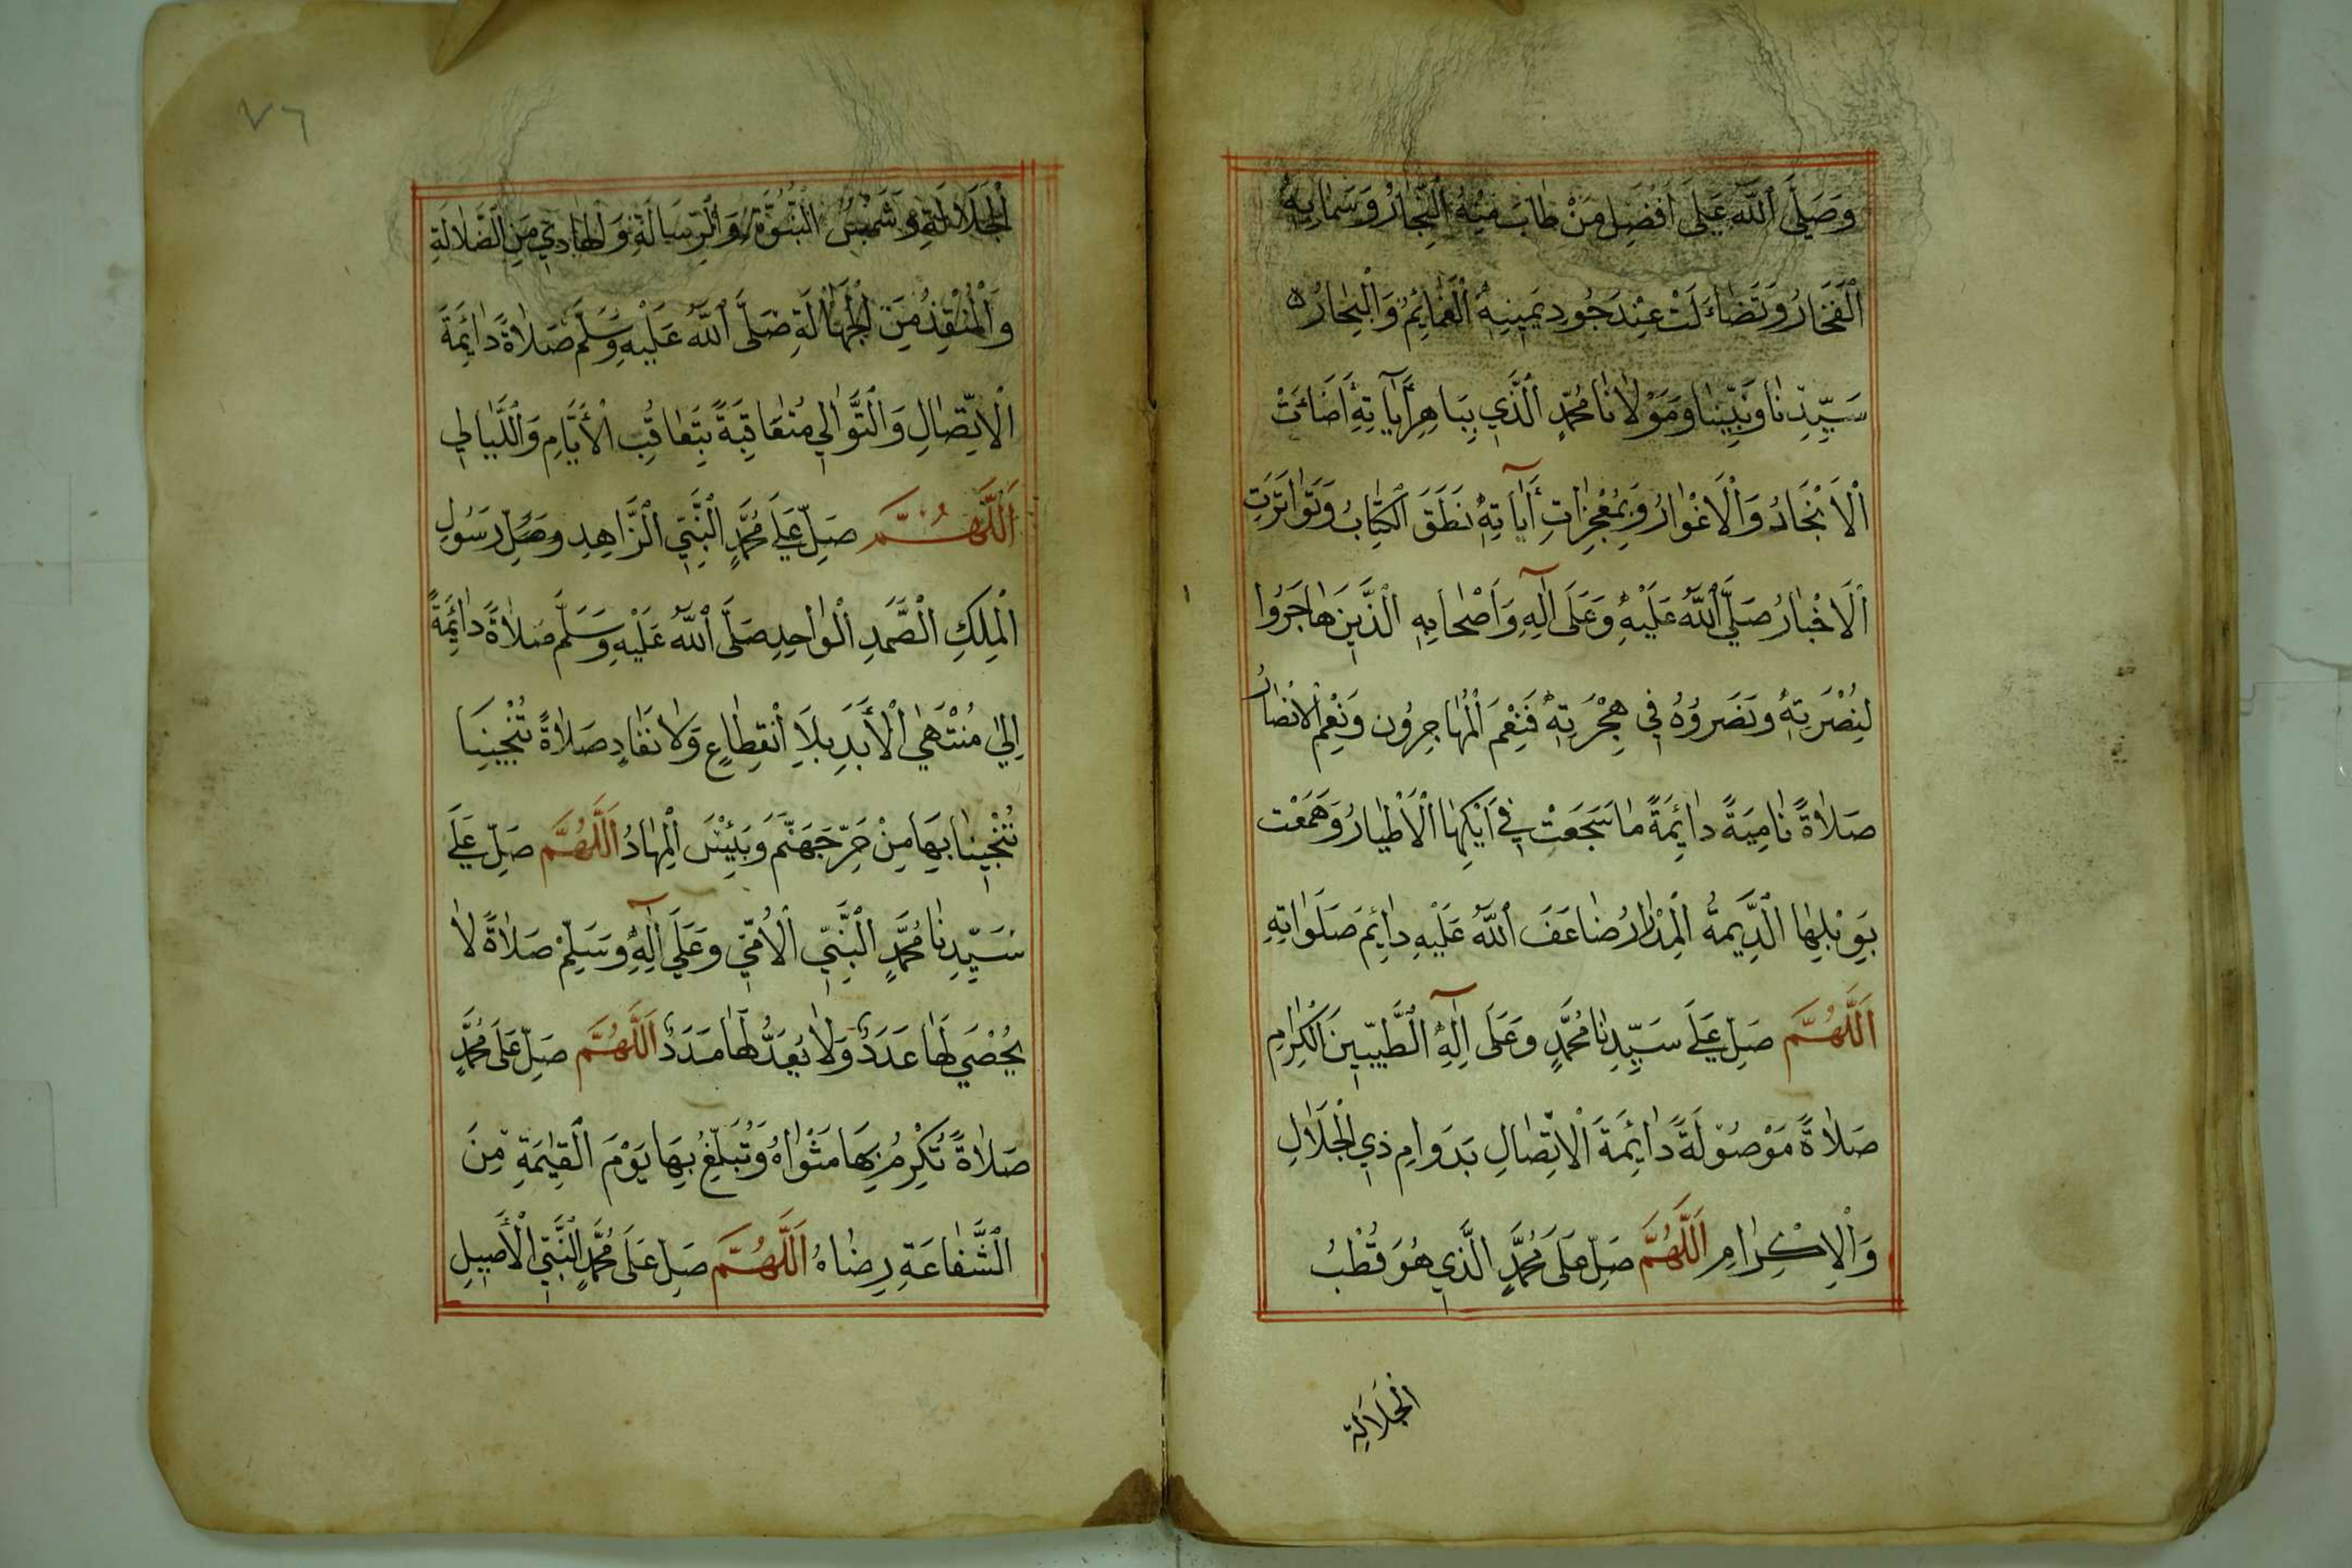 وَصَلَّى ٱللَّهُ عَلَى أَفْضَلِ مَنْ طَابَ مِنْهُ ٱلنِّجَارُ وَسَمَابِهِ
ٱلْفَخَارُ وَتَضَاءَلَتْ عِنْدَ جُودِ يَمِينِهِ ٱلْغَمَائِمُ وَٱلْبِحَارُ ه
سَيِّدِنَا وَنَبِيِّنَا وَمَوْلَانَا مُحَمَّدٍ ٱلَّذِي بِبَاهِرِ أٰيَاتِهِ أَضَاءَتْ
ٱلْاَنْجَادُ وَٱلْاَغْوَارُ وَبِمُعْجِزَاتِ أٰيَاتِهِ نَطَقَ ٱلْكِتَابُ وَتَوَاتَرَتِ
ٱلْاَخْبَارُ صَلَّى ٱللَّهُ عَلَيْهِ وَعَلَى اٰلِهِ وَاَصْحَابِهِ ٱلَّذِينَ هَاجَرُوا
لِنُصْرَتِهِ وَنَصَرُوهُ فِي هِجْرَتِهِ فَنِعْمَ ٱلْمُهَاجِرُون وَنِعْمَ ٱلْاَنْصَارُ
صَلَاةً نَامِيَةً دَائِمَةً مَا سَجَعَتْ فِي اَيْكِهَا ٱلْاَطْيَارُ وَهَمَعْت
بِوَبْلِهَا ٱلدِّيمَةُ ٱلْمِدْرَارُ ضَاعَفَ ٱللَّهُ عَلَيْهِ دَائِمَ صَلَوَاتِهِ
اَللَّهُمَّ صَلِّ عَلَى سَيِّدِنَا مُحَمَّدٍ وَعَلَى اٰلِهِ ٱلطَّيِّبِينَ ٱلْكِرَامِ
صَلَاةً مَوْصُوْلَةً دَائِمَةَ ٱلْاِتِّصَالِ بَدَوَامِ ذِي ٱلْجَلَالِ
وَٱلْاِكْرَامِ اَللَّهُمَّ صَلِّ عَلَى مُحَمَّدٍ ٱلَّذِي هُوَ قُطْبُ
ٱلْجَلَالَةِ
٧٦
ٱلْجَلَالَةِ وَشَمْسُ ٱلنُّبُوَّةِ وَٱلرِّسَالَةِ وَٱلْهَادِي مِنَ ٱلضَّلَالَةِ
وَٱلْمُنْقِذُ مِنَ ٱلْجَهَالَةِ صَلَّى ٱللَّهُ عَلَيْهِ وَسَلَّمَ صَلَاةً دَائِمَةَ
ٱلْاِتِّصَالِ وَٱلتَّوَالِي مُتَعَاقِبَةً بِتَعَاقُبِ ٱلْأَيَّامِ وَٱللَّيَالِي
اَللَّهُمَّ صَلِّ عَلَى مُحَمَّدٍ ٱلنَّبِيِّ ٱلزَّاهِدِ وَصَلِّ رَسُولِ
ٱلْمَلِكِ ٱلصَّمَدِ ٱلْوَاحِدِ صَلَّى ٱللَّهُ عَلَيْهِ وَسَلَّمَ صَلَاةً دَائِمَةً
اِلَىٰ مُنْتَهَى ٱلْأَبَدِ بِلَا اْنْقِطَاعٍ وَلَا نَفَادٍ صَلَاةً تُنْجِينَا
تُنْجِينَا بِهَا مِنْ حَرِّ جَهَنَّمَ وَبِئْسَ ٱلْمِهَادُ اَللَّهُمَّ صَلِّ عَلَى
سَيِّدِنَا مُحَمَّدٍ ٱلنَّبِيِّ ٱلْأُمِّيِّ وَعَلَى اٰلِهِ وَسَلِّمْ صَلَاةً لَا
يُحْصَى لَهَا عَدَدٌ وَلَا يُعَدُّ لَهَا مَدَدٌ اَللَّهُمَّ صَلِّ عَلَى مُحَمَّدٍ
صَلَاةً تُكْرِمُ بِهَا مَثْوَاهُ وَتُبَلِّغُ بِهَا يَوْمَ ٱلْقِيٰمَةِ مِنَ
ٱلشَّفَاعَةِ رِضَاهُ اَللَّهُمَّ صَلِّ عَلَى مُحَمَّدٍ ٱلنَّبِيِّ ٱلْأَصِيلِ